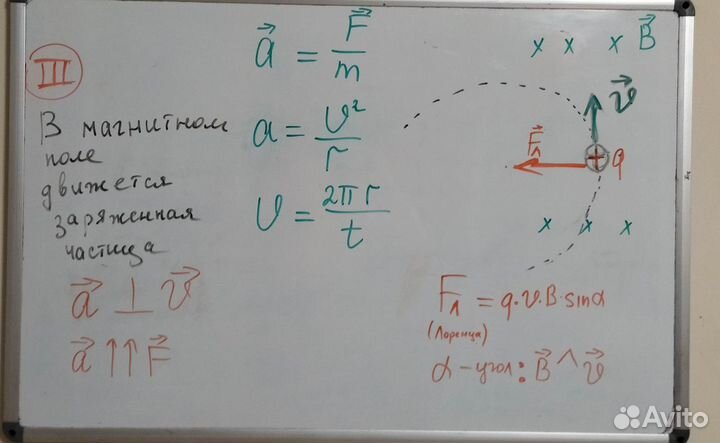 III
В магнитном
поле
движется
заряженная
частица
a⃗ ⊥ v⃗
a⃗ ↑↑ F⃗
a⃗ = F⃗/m
a = v²/r
v = 2πr/t
x x x B⃗
v⃗
F⃗л
+ q
x x x
Fл = q·v·B·sinα
(Лоренца)
α - угол: B⃗ ^ v⃗
Avito